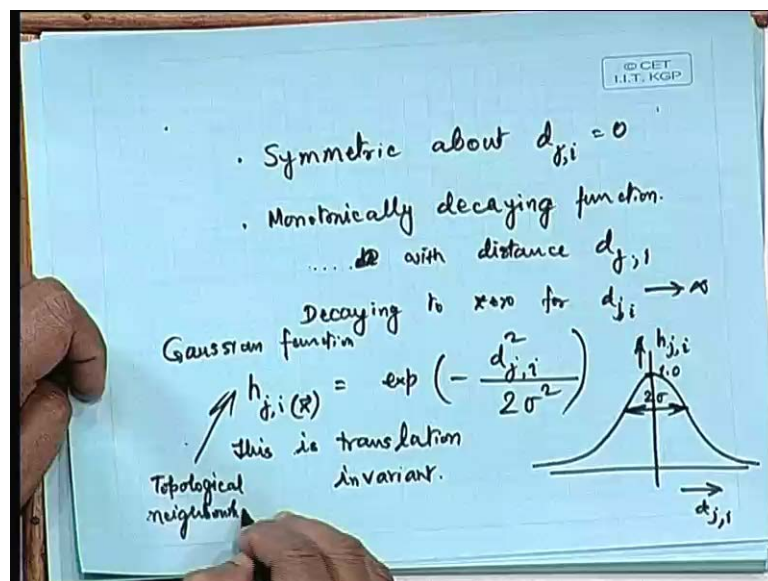 © CET
I.I.T. KGP
. Symmetric about d_{j,i} = 0
. Monotonically decaying function.
..... with distance d_{j,i}
Decaying to zero for d_{j,i} → ∞
Gaussian function
h_{j,i(x)} = exp (- d²_{j,i} / 2σ²)
This is translation
invariant.
Topological
neighbourh
h_{j,i}
1.0
2σ
d_{j,i}